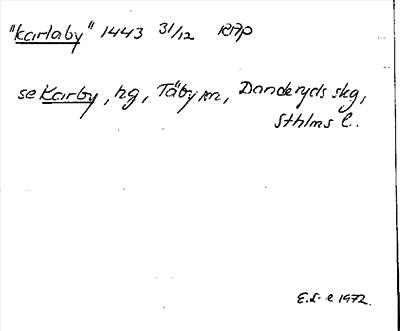 "karlaby" 1443 31/12 RAp
se Karby, hg, Täby sn, Danderyds skg,
Sthlms l.
E.L-e 1972.